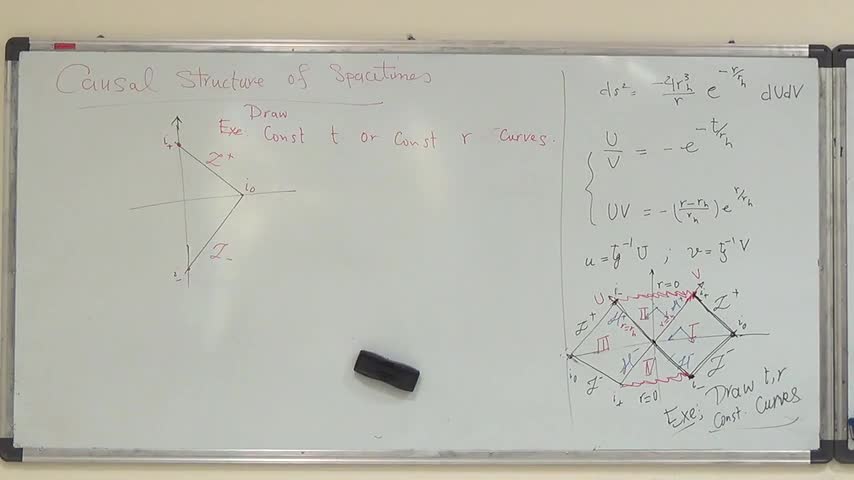 Causal Structure of Spacetimes
Draw
Exe Const t or Const r Curves.
i₊
I⁺
i₀
I₋
i₋
ds² = -4r_h³/r e^{-r/r_h} dUdV
U/V = -e^{-t/r_h}
UV = -(r-r_h/r_h) e^{r/r_h}
u = tg⁻¹ U ; v = tg⁻¹ V
r=0
U i₋ V i₊
I⁺ H⁺ r=r_h II H⁺ I⁺
III I i₀
i₀ H⁻ IV H⁻
I⁻ I⁻
i₊ r=0 i₋
Exe; Draw t,r
Const. Curves